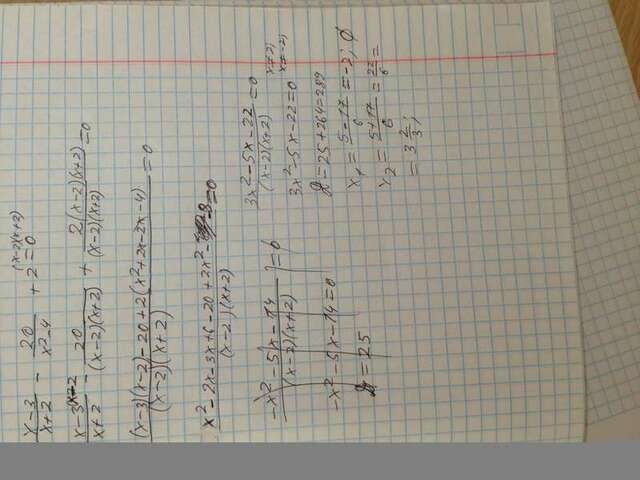 (x-2)(x+2)
x-3/x+2 - 20/x²-4 + 2 = 0
x-3(x-2/x+2 - 20/(x-2)(x+2) + 2(x-2)(x+2)/(x-2)(x+2) = 0
(x-3)(x-2)-20+2(x²+2x-2x-4)/(x-2)(x+2) = 0
x²-2x-3x+6-20+2x²-8/(x-2)(x+2) = 0
-x²-5x-14/(x-2)(x+2) = 0
-x²-5x-14=0
D=25
3x²-5x-22/(x-2)(x+2) = 0
x≠2;
x≠-2;
3x²-5x-22=0
D=25+264=289
x₁ = 5-17/6 = -2; ∅
x₂ = 5+17/6 = 22/6 =
= 3 2/3;